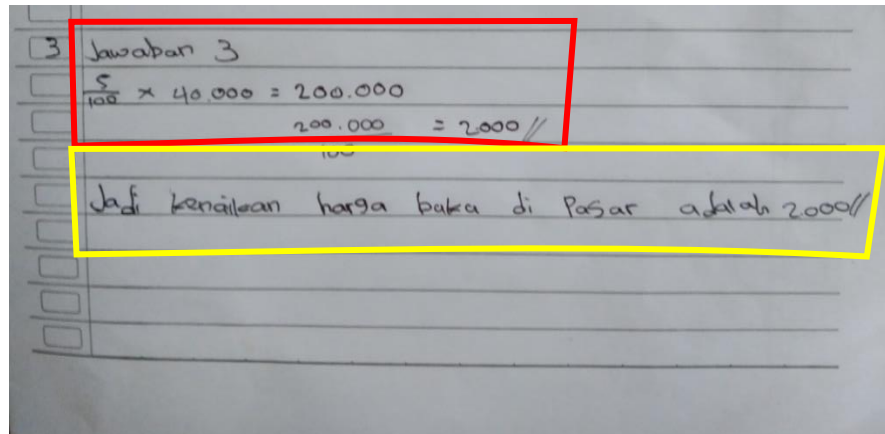 3 Jawaban 3
5/100 × 40.000 = 200.000
200.000/100 = 2000//
Jadi kenaikan harga baka di Pasar adalah 2000//